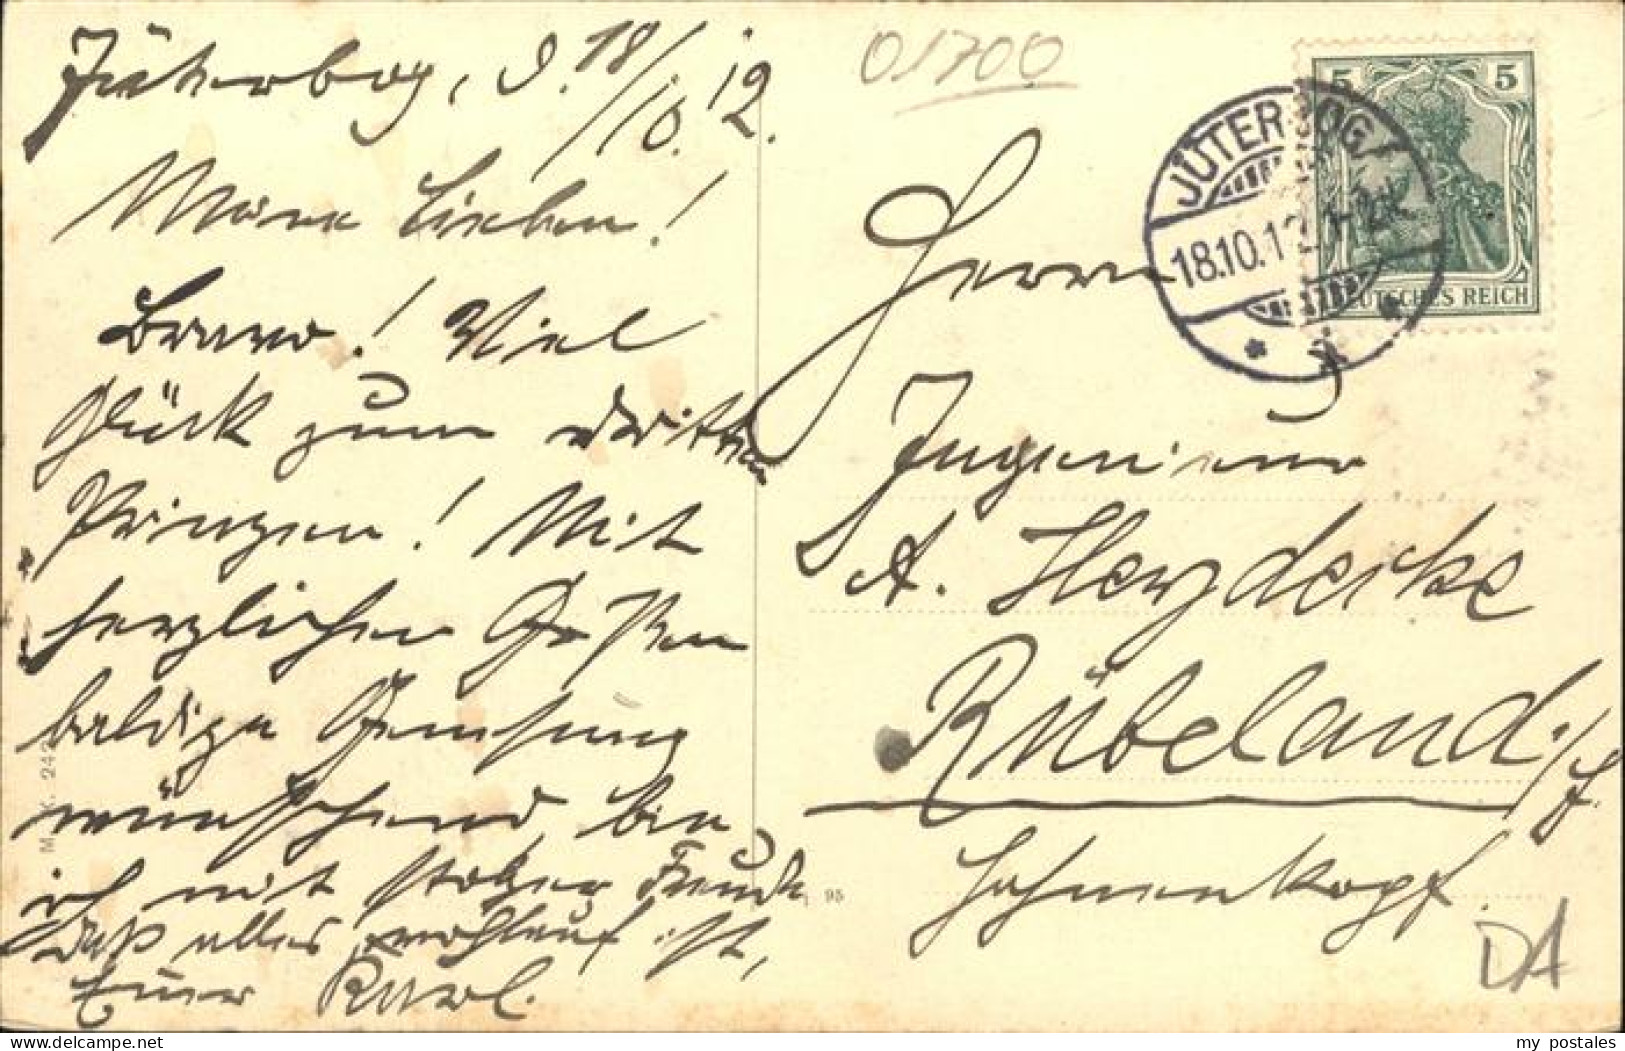 Jüterbog, d. 18/10. 12.
Meine Lieben!
Bravo! Viel
Glück zum dritten
Prinzen! Mit
herzlichen Grüßen
baldige Genesung
wünschend, bin
ich mit stolzer Freude,
daß alles wohlauf ist,
Euer Karl.
01700
Herrn
Ingenieur
A. Heydecke
Rübeland i/H.
Hahnenkopf.
JÜTERBOG
18.10.12.
5 5
DEUTSCHES REICH
M. K. 242
95
DA
my_postales
www.delcampe.net